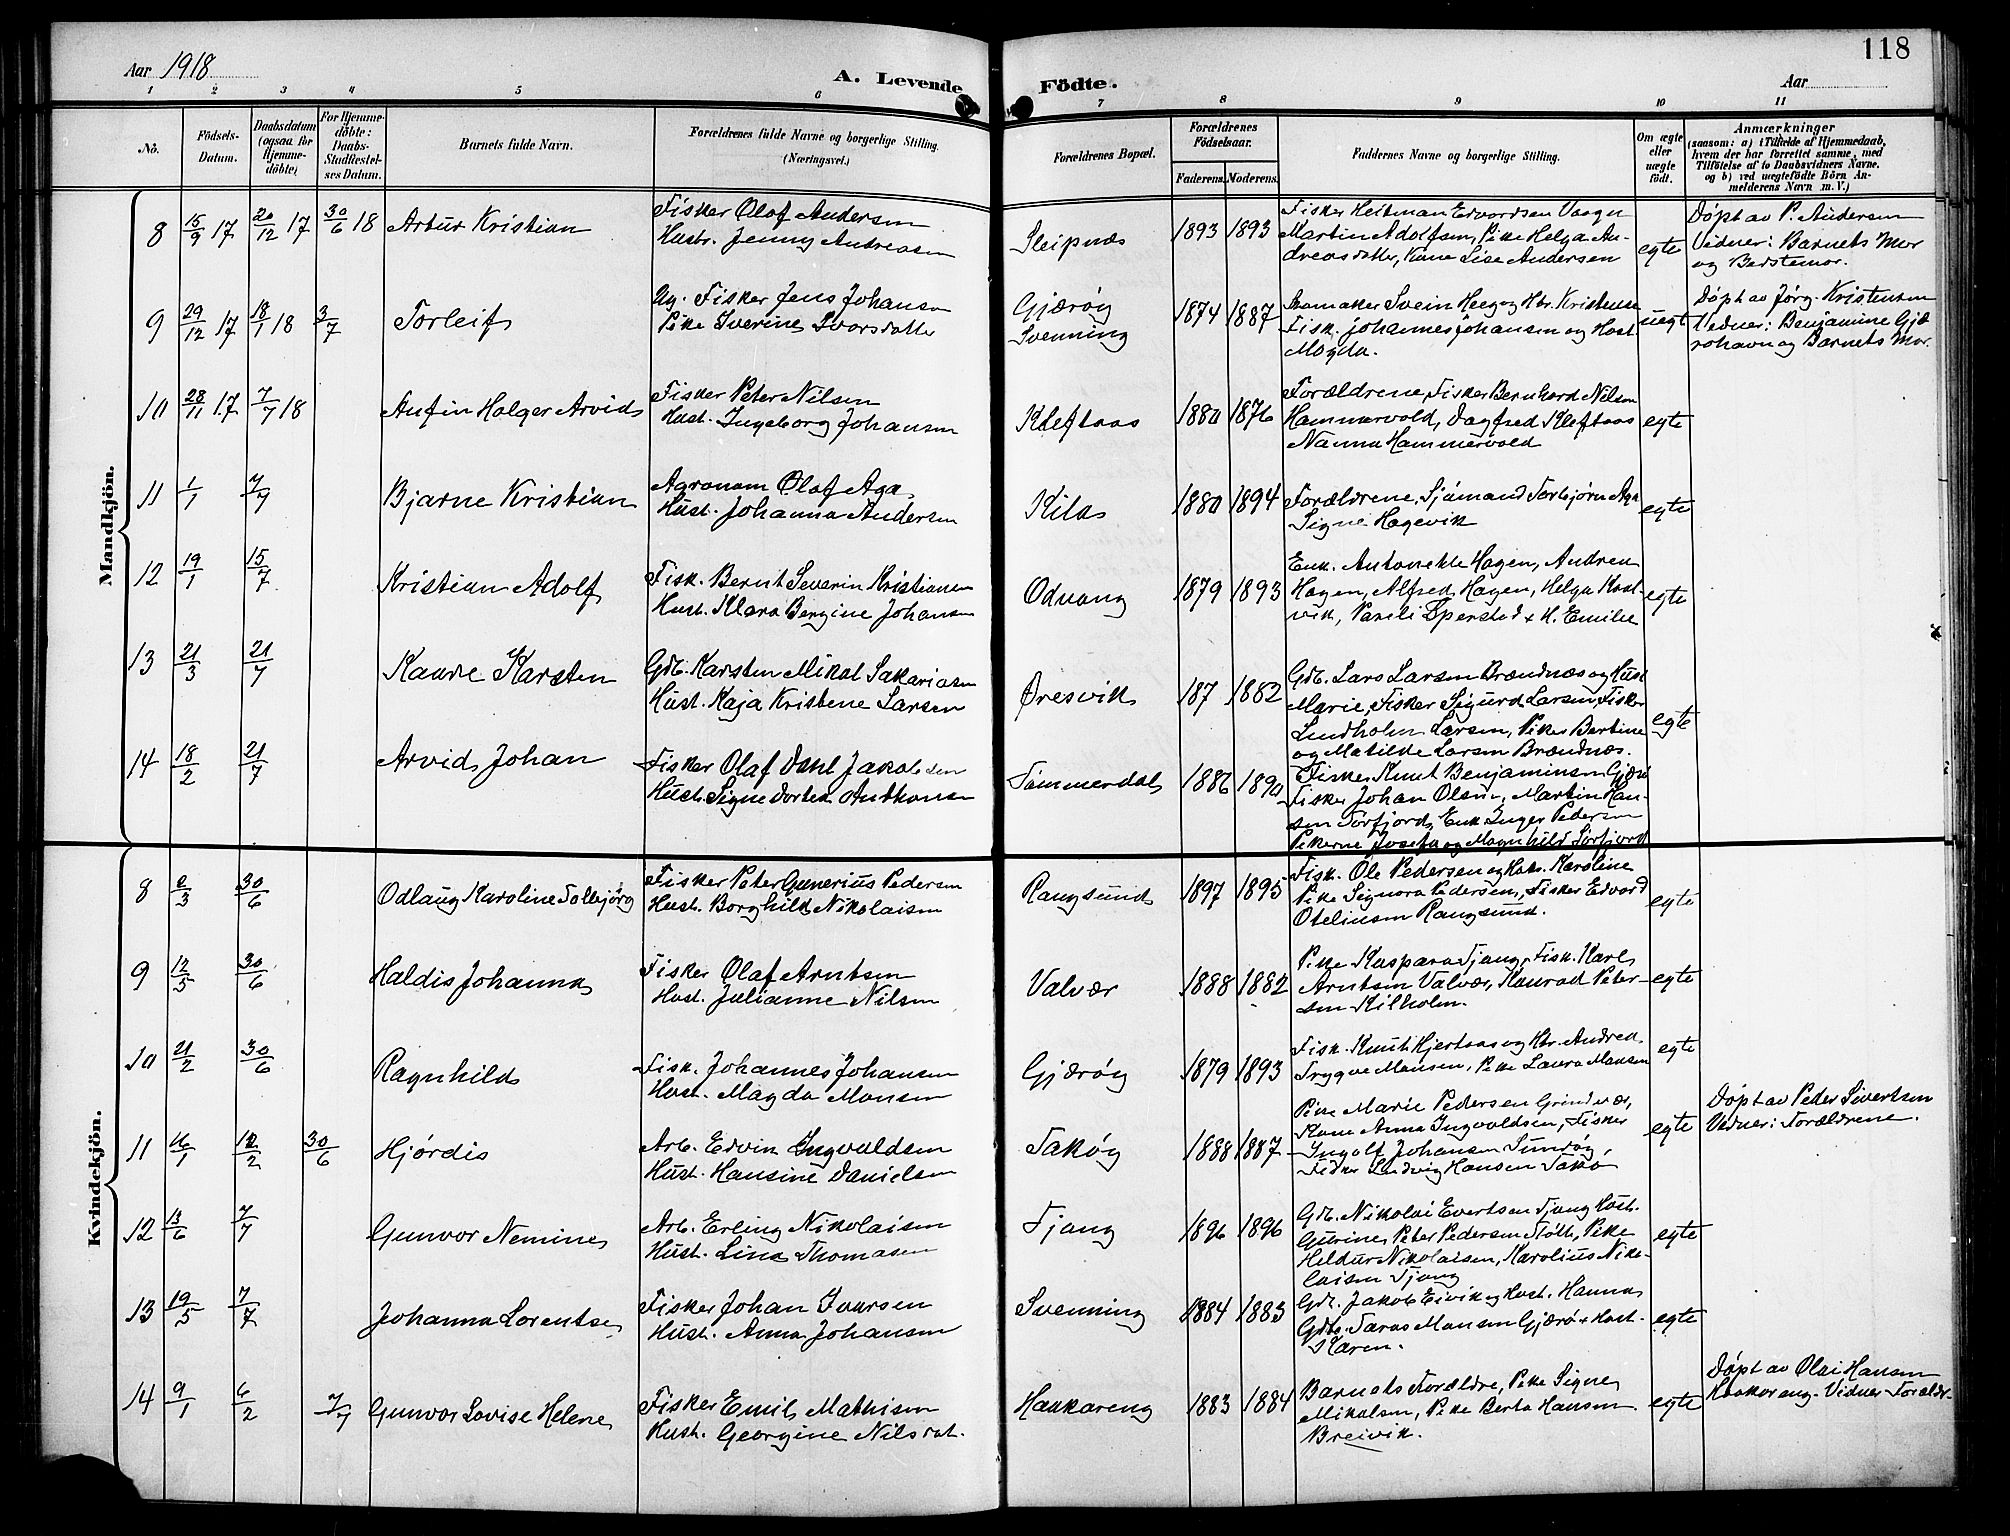 Aar 1918
A. Levende Födte.
Aar
118
1 2 3 4 5 6 7 8 9 10 11
No.
Födsels-
Datum.
Daabsdatum
(ogsaa for
Hjemme-
döbte)
For Hjemme-
döbte:
Daabs-
Stadfæstel-
ses Datum.
Barnets fulde Navn.
Forældrenes fulde Navne og borgerlige Stilling.
(Næringsvei.)
Forældrenes Bopæl.
Forældrenes
Födselsaar.
Faderens. Moderens.
Faddernes Navne og borgerlige Stilling.
Om ægte
eller
uægte
födt.
Anmærkninger
(saasom: a) i Tilfælde af Hjemmedaab,
hvem der har forrettet samme, med
Tilföielse af to Daabsvidners Navne.
og b) ved uægtefödte Börn An-
melderens Navn m. V.)
Mandkjön.
8 15/9 17 20/12 17 30/6 18 Artur Kristian
Fisker Olaf Andersen
Hustr. Jenny Andreasen
Sleipnæs 1893 1893
Fisker Heitman Edvardsen Vaagn
Martin Adolfsen, Pike Helga An-
dreasdatter, Kone Lise Andersen
egte
Døpt av P. Andersen
Vidner: Barnets Mor
og Bedstemor.
9 29/12 17 18/1 18 3/7 Torleif
Ug. Fisker Jens Johansen
Pike Iverine Ivarsdatter
Gjærøy
Svenning
1874 1887
Skomaker Svein Heeg og Htr. Kristense
Fisk. Johannes Johansen og Hust
Magda.
uegt
Døpt av Jørg. Kristensen
Vidner: Benjamine Gjæ
røhavn og Barnets Mor.
10 28/11 17 7/7 18 Anfin Holger Arvid
Fisker Peter Nilsen
Hust. Ingeborg Johansen
Kleftaas 1880 1876
Forældrene, Fisker Bernhard Nilsen
Hammervold, Dagfred Kleftaas
Nanna Hammervold
egte
11 1/1 7/7 Bjarne Kristian
Agronom Olaf Aga
Hust. Johanna Andersen
Kila 1880 1894
Forældrene, Sjømand Torbjørn Aga
Signe Hagevik
egte
12 19/1 15/7 Kristian Adolf
Fisk. Bernt Severin Kristiansen
Hust. Klara Bergine Johansen
Odvang 1879 1893
Enk. Antonette Hagen, Andrea
Hagen, Alfred Hagen, Helga Kost-
vik, Vasili Sperstad + H. Emilie
egte
13 21/3 21/7 Kaare Karsten
Gdb. Karsten Mikal Sakariasen
Hust. Kaja Kristene Larsen
Øresvik 187 1882
Gdb. Lars Larsen Brændnæs og Hust
Marie, Fisker Sigurd Larsen, Fisker
Lindholm Larsen, Piker Bertine
og Matilde Larsen Brændnæs.
egte
14 18/2 21/7 Arvid Johan
Fisker Olaf Dahl Jakobsen
Hust. Signe Dortea
Tømmerdal 1886 1890
Fisker Knut Benjaminsen Gjærø
Fisker Johan Olsen, Martin Han-
sen Sørfjord, Enk Inger Pedersen
Pikerne Josefa og Magnhild Sørfjord
Kvindekjön.
8 2/3 30/6 Odlaug Karoline Solbjørg
Fisker Peter Gunerius Pedersen
Hust. Borghild Nikolaisen
Rangsund 1897 1895
Fisk. Ole Pedersen og Hstr. Karoline
Pike Signora Pedersen, Fisker Edvard
Oteliusen Rangsund.
egte
9 12/5 30/6 Haldis Johanna
Fisker Olaf Arntsen
Hust. Julianne Nilsen
Valvær 1888 1882
Pike Kaspara Tjang, Fisk. Karl
Arntsen Valvær, Konrad Peter-
sen Kilholm.
egte
10 21/2 30/6 Ragnhild
Fisk. Johannes Johansen
Hust. Magda Monsen
Gjærøy 1879 1893
Fisk. Knut Hjertaas og Htr. Andrea
Trygve Monsen, Pike Laura Monsen
egte
11 16/1 12/2 30/6 Hjørdis
Arb. Edvin Ingvaldsen
Hust. Hansine Danielsen
Sakøy 1888 1887
Pike Marie Pedersen Grindvær,
Kone Anna Ingvaldsen, Fisker
Ingolf Johansen Sundøy,
Fisker Ludvig Hansen Sakø
egte
Døpt av Peder Sivertsen
Vidner: Forældrene.
12 13/6 7/7 Gunvor Nemine
Arb. Erling Nikolaisen
Hust. Lina Thomasen
Tjang 1896 1896
Gdb. Nikolai Evertsen Tjang Hust.
Gurine, Peter Pedersen Støtt, Pike
Heldur Nikolaisen, Karolius Niko-
laisen Tjang
egte
13 19/5 7/7 Johanna Lorentse
Fisker Johan Ivarsen
Hust. Anna Johansen
Svenning 1884 1883
Gdb. Jakob Eivik og Hust. Hanna
Gdbr. Taras Monsen Gjærø + Hust.
Karen.
egte
14 9/1 6/2 7/7 Gunvor Lovise Helene
Fisker Emil Mathisen
Hust. Georgine Nilsdat.
Haakareng 1883 1884
Barnets Forældre, Pike Signe
Mikalsen, Pike Berta Hansen
Breivik.
egte
Døpt av Olai Hansen
Haakoreng. Vidner Forældr.